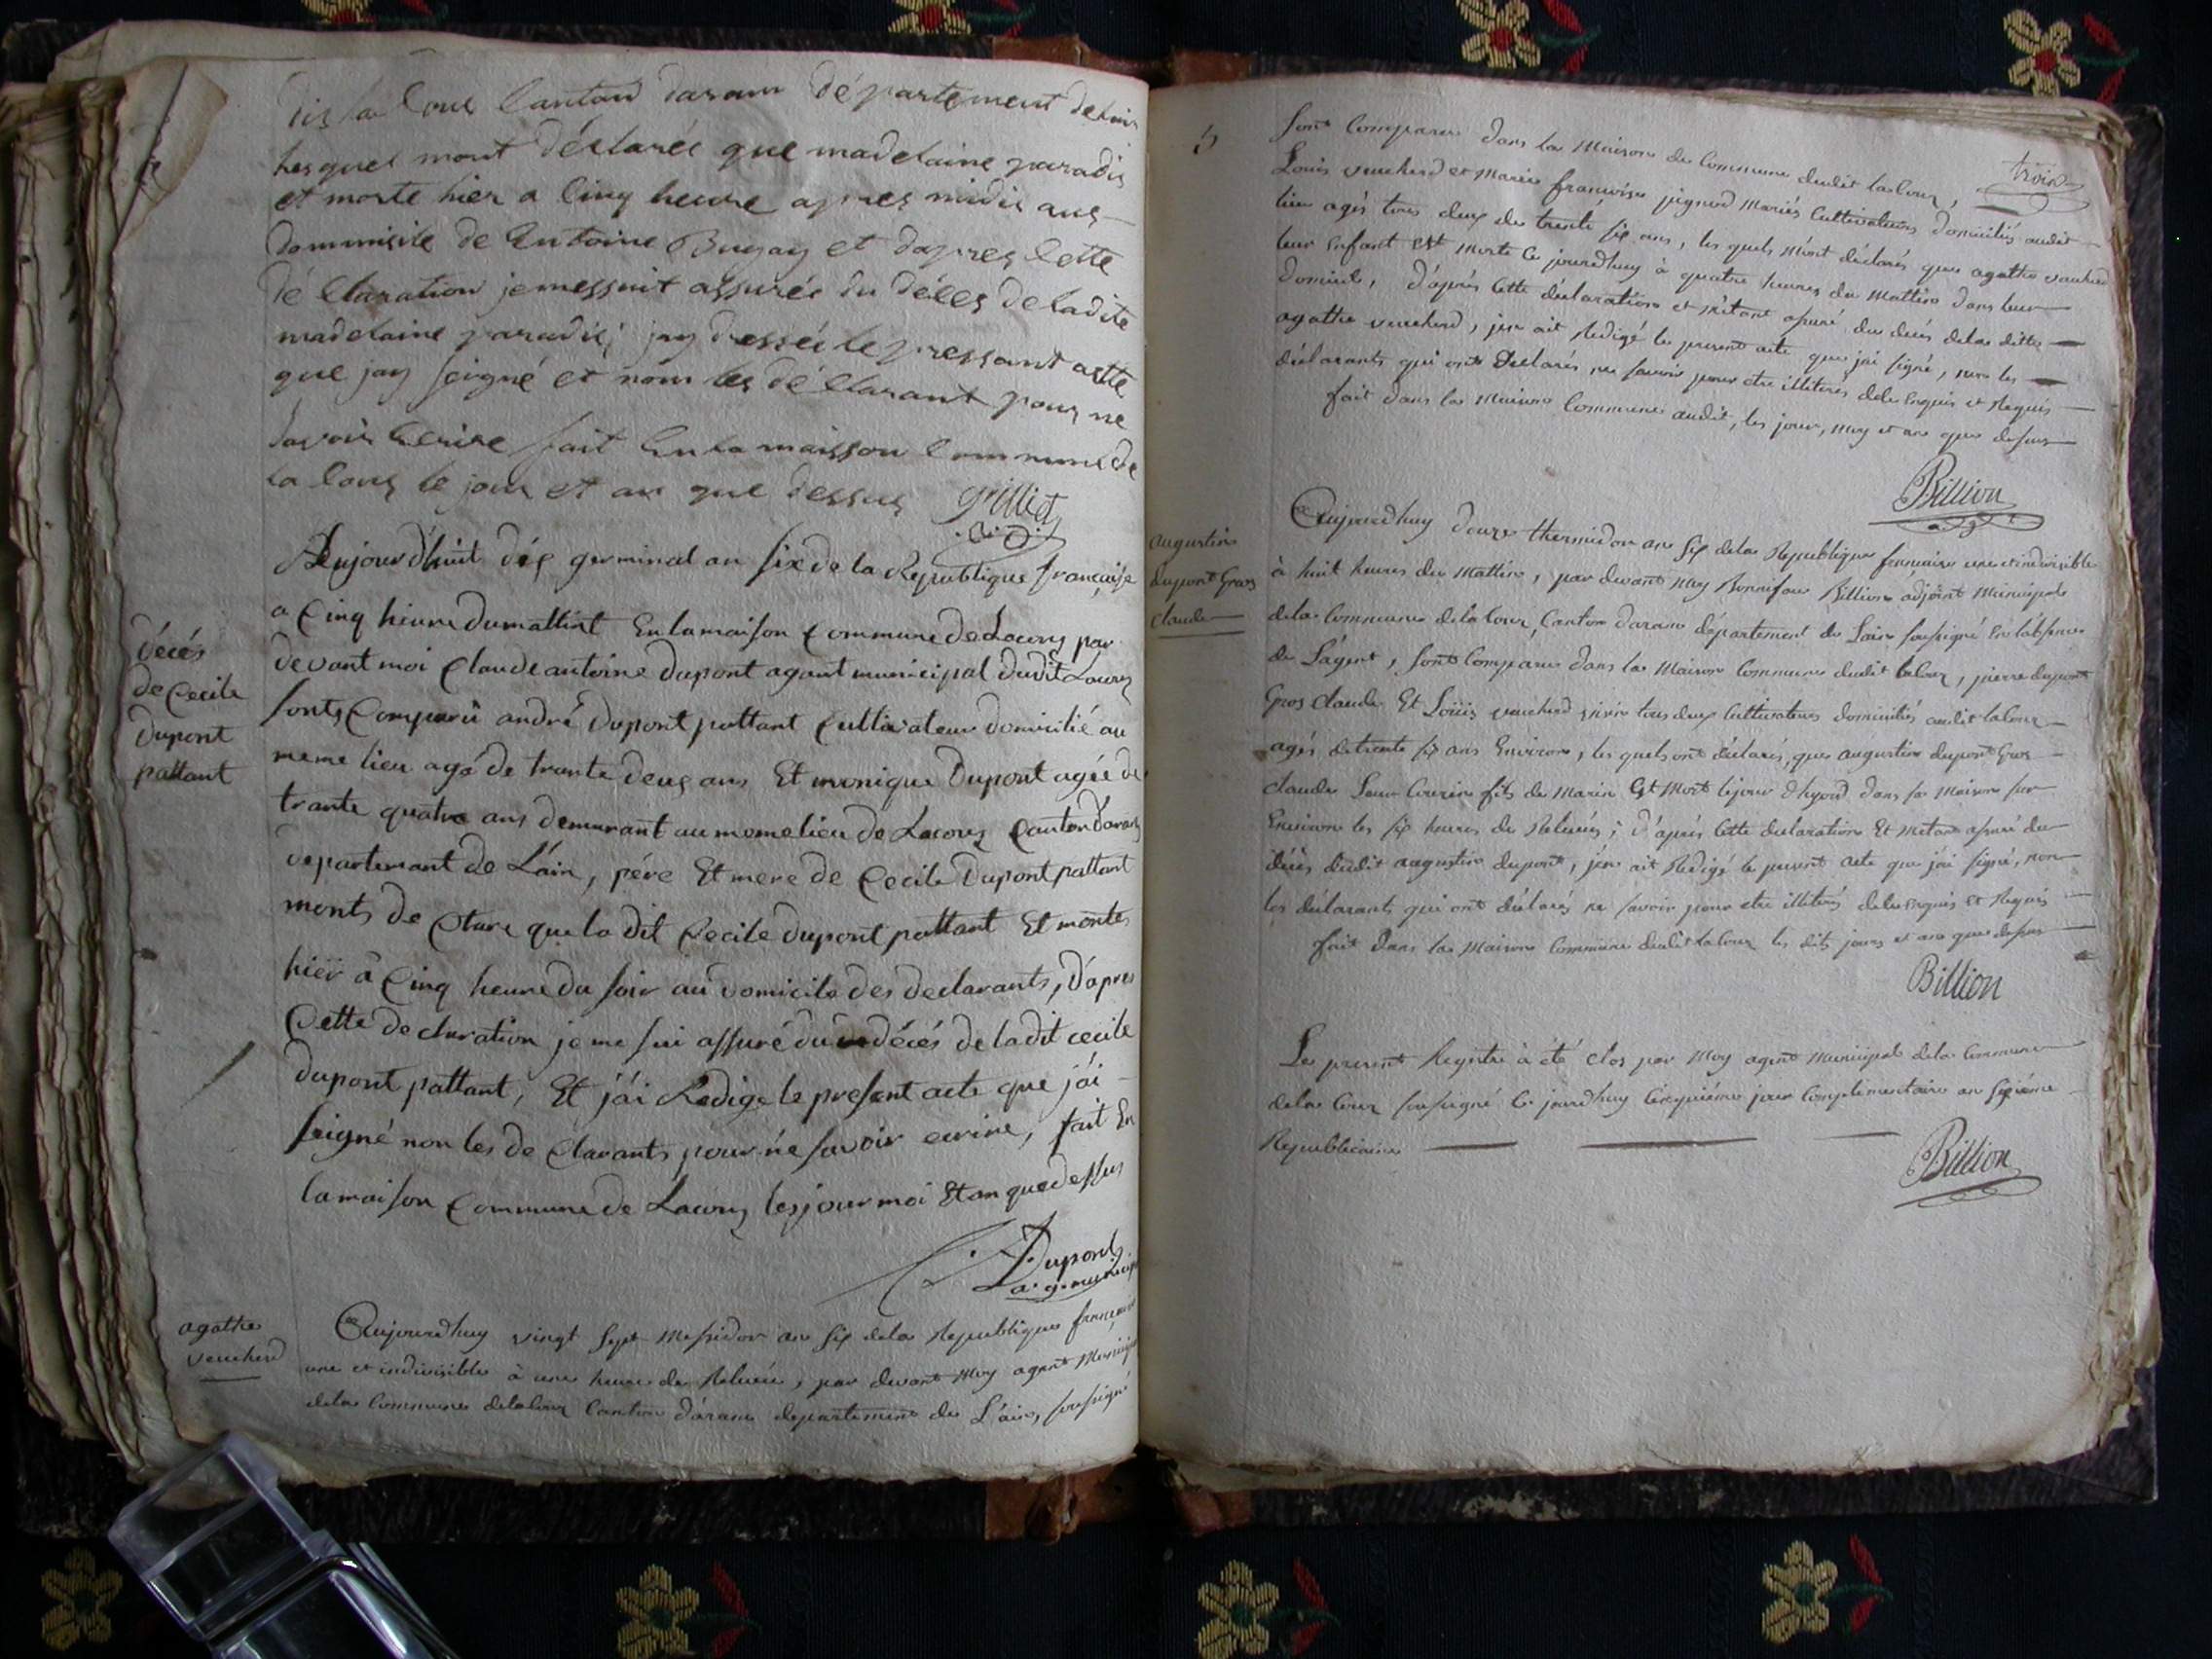 dis la Coux Canton daranc département de lain
lesquel mont déclarée que madelaine paradis
et morte hier a Cinq heure apres midis aus
dommisile de Entoine Bugay et dapres Cette
dé Claration je messuit assurée du déces de ladite
madelaine paradis; jay dressée le pressant actte
que jay seigné et nom les dé Clarant pour ne
savoir Ecrire fait En la maisson Commune de
la Coux le jour et an que dessus Grilliet
Aujourd'huit dix germinal an six de la Republique française
a Cinq hieure du mattint En la maison Commune de Lacoux par
devant moi Claude antoine dupont agant municipal dudit Lacoux
sonts Comparû andré Dupont pattant Cultivateur domicilié au
meme lieu agé de trante deux ans Et monique Dupont agée de
trante quatre ans demurant au meme lieu de Lacoux Canton daranc
departemant de L'ain, pére Et mere de Cecile Dupont pattant
monts de Claré que la dit Cecile dupont pattant Et morte
hiër à Cinq heure du soir au domicile des declarants, d'apres
Cette declaration je me sui assuré du décés de la dit cecile
dupont pattant, Et j'ai Redige le present acte que j'ai
seigné non les de Clarants pour ne savoir ecrire, fait En
la maison Commune de Lacoux les jour moi Et an que dessus
Dupont
a.g. municip
décés
de Cecile
Dupont
pattant
agathe
vuecherd
Aujourdhuy vingt sept Messidor an six de la Republique françoise
une et indivisible à une heure de Relevée, par devant Moy agent Municipal
de la Commune de la Coux Canton d'aranc departement de L'ain, soussigné
5
trois
sont Comparus dans la Maison de Commune dudit la Coux,
Louis vuecherd et Marie françoise jignerd Mariés Cultivateurs domiciliés audit
lieu agés tous deux de trente six ans, les quels m'ont déclarés que agathe vuecherd
leur Enfant est morte Ce jourdhuy à quatre heures du Mattin dans leur
domicile, D'après Cette déclaration et m'étant assuré du décés de la ditte
agathe vuecherd, j'en ait Redigé le present acte que j'ai signé, non les
déclarants qui ont Declarés ne savoir pour etre illiterés de le Enquis et Requis
fait dans la Maison Commune audit, les jour, moy et an que dessus
Billion
augustin
dupont Gros
claude
Aujourdhuy douze thermidor an six de la Republique françoise une et indivisible
à huit heures du Mattin, par devant Moy Bonnifaue Billion adjoint Municipal
de la Commune de la Coux, Canton daranc département de Lain soussigné En l'absence
de L'agent, sont Comparus dans la Maison Commune dudit la Coux, pierre dupont
Gros claude Et Loüis vuecherd tous deux Cultivateurs domiciliés audit la Coux
agés de trente six ans Environ, les quels ont déclarés, que augustin dupont Gros
claude Leur Cousin fils de Marin Est Mort le jour d'hyerd dans sa Maison sur
Environ les six heures de Relevées; D'après Cette declaration Et Metant assuré du
décès dudit augustin dupont, j'en ait Redigé le present acte que j'ai signé, non
les déclarants qui ont déclarés ne savoir pour etre illiterés de le Enquis et Requis
fait dans la Maison Commune dudit la Coux les dits jours et an que dessus
Billion
Le present Registre à été clos par Moy agent Municipal de la Commune
de la Coux soussigné Ce jourdhuy Cinquiéme jour Complementaire an sixiéme
Republicaine
Billion